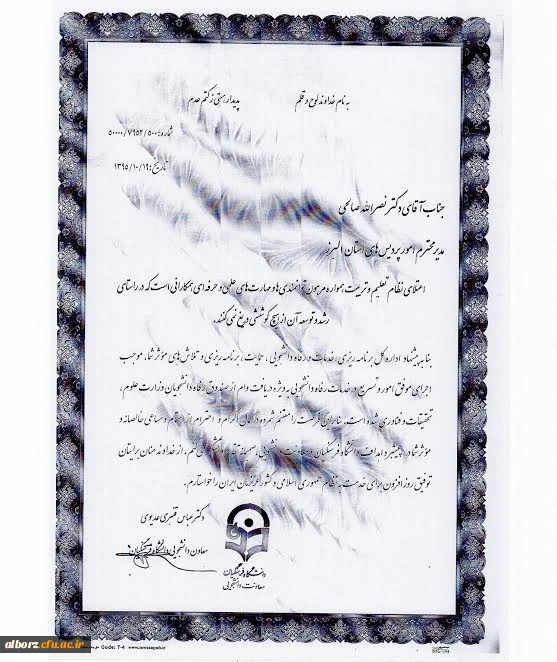 به نام خداوند لوح و قلم
پدیدآر هستی ز کتم عدم
شماره: ۵۰۰۰۰/۷۹۵۲/۵۰۰
تاریخ: ۱۳۹۵/۱۰/۱۹
جناب آقای دکتر نصرالله صالحی
مدیر محترم امور پردیس های استان البرز
اعتلای نظام تعلیم و تربیت همواره مرهون توانمندی ها و مهارت های علمی و حرفه ای همکارانی است که در راستای
رشد و توسعه آن از هیچ کوششی دریغ نمی کنند.
بنا به پیشنهاد اداره کل برنامه ریزی، خدمات و رفاه دانشجویی، حمایت، برنامه ریزی و تلاش های مؤثر شما، موجب
اجرای موفق امور و تسریع در خدمات رفاه دانشجویی به ویژه دریافت وام از صندوق رفاه دانشجویان وزارت علوم،
تحقیقات و فناوری شده است. بنابراین فرصت را مغتنم شمرده و با کمال اکرام و احترام از اهتمام و مساعی خالصانه و
مؤثر شما در پیشبرد اهداف دانشگاه فرهنگیان و معاونت دانشجویی، صمیمانه تقدیر و تشکر می کنم. از خداوند منان برایتان
توفیق روز افزون برای خدمت به نظام جمهوری اسلامی و کشور عزیزمان ایران را خواستارم.
دکتر عباس قنبری عدیوی
معاون دانشجویی دانشگاه فرهنگیان
دانشگاه فرهنگیان
معاونت دانشجویی
alborz.cfu.ac.ir
Code: T-4